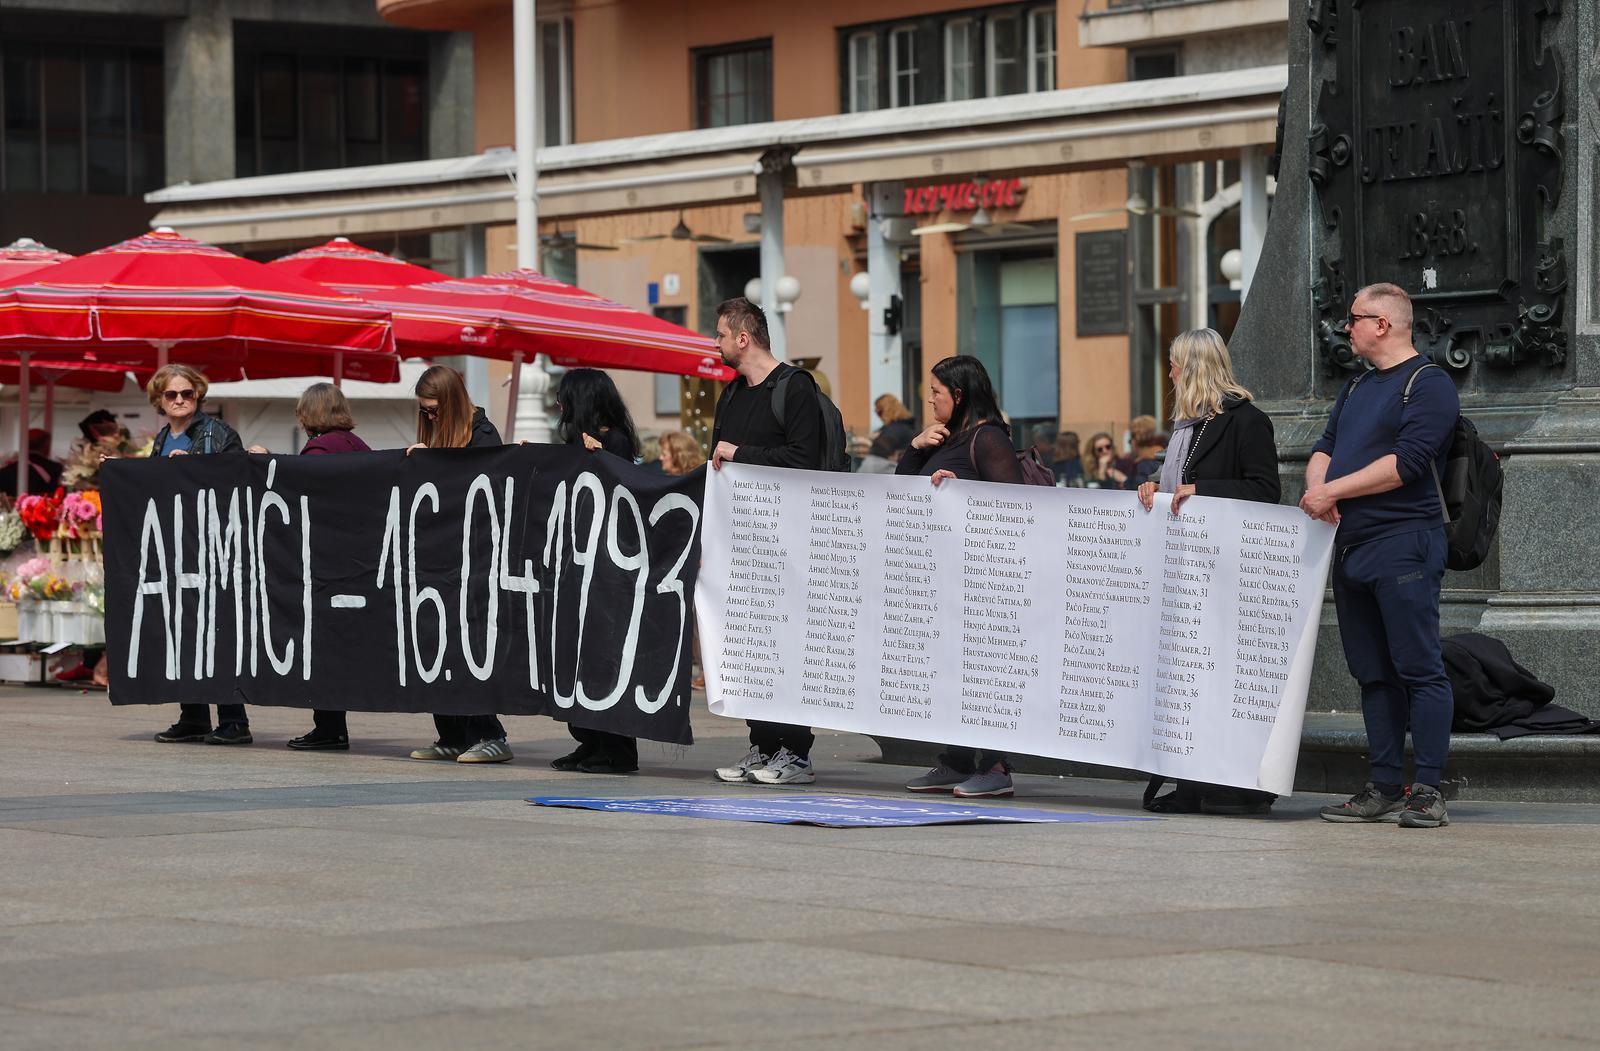 AHMIĆI – 16.04.1993.
AHMIĆ ALIJA, 56
AHMIĆ ALMA, 15
AHMIĆ AMIR, 14
AHMIĆ ASIM, 39
AHMIĆ BESIM, 24
AHMIĆ ĆELEBIJA, 66
AHMIĆ DŽEMAL, 71
AHMIĆ ĐULBA, 51
AHMIĆ ELVEDIN, 19
AHMIĆ ESAD, 53
AHMIĆ FAHRUDIN, 38
AHMIĆ FATE, 53
AHMIĆ HAJRA, 18
AHMIĆ HAJRIJA, 73
AHMIĆ HAJRUDIN, 34
AHMIĆ HAŠIM, 62
AHMIĆ HAZIM, 69
AHMIĆ HUSEJIN, 62
AHMIĆ ISLAM, 45
AHMIĆ LATIFA, 48
AHMIĆ MINETA, 35
AHMIĆ MIRNESA, 29
AHMIĆ MUJO, 35
AHMIĆ MUNIB, 58
AHMIĆ MURIS, 26
AHMIĆ NADIRA, 46
AHMIĆ NASER, 29
AHMIĆ NAZIF, 42
AHMIĆ RAMO, 67
AHMIĆ RASIM, 28
AHMIĆ RASMA, 66
AHMIĆ RAZIJA, 29
AHMIĆ REDŽIB, 65
AHMIĆ SABIRA, 22
AHMIĆ SAKIB, 58
AHMIĆ SAMIR, 19
AHMIĆ SEAD, 3 MJESECA
AHMIĆ SEMIR, 7
AHMIĆ SMAIL, 62
AHMIĆ SMAILA, 23
AHMIĆ ŠEFIK, 43
AHMIĆ ŠUHRET, 37
AHMIĆ ŠUHRETA, 6
AHMIĆ ZAHIR, 47
AHMIĆ ZULEJHA, 39
ALIĆ EŠREF, 38
ARNAUT ELVIS, 7
BRKA ABDULAH, 47
BRKIĆ ENVER, 23
ČERIMIĆ AIŠA, 40
ČERIMIĆ EDIN, 16
ČERIMIĆ ELVEDIN, 13
ČERIMIĆ MEHMED, 46
ČERIMIĆ SANELA, 6
DEDIĆ FARIZ, 22
DEDIĆ MUSTAFA, 45
DŽIDIĆ MUHAREM, 27
DŽIDIĆ NEDŽAD, 21
HARČEVIĆ FATIMA, 80
HELEG MUNIB, 51
HRNJIĆ ADMIR, 24
HRNJIĆ MEHMED, 47
HRUSTANOVIĆ MEHO, 62
HRUSTANOVIĆ ZARFA, 58
IMŠIREVIĆ EKREM, 48
IMŠIREVIĆ GALIB, 29
IMŠIREVIĆ ŠAĆIR, 43
KARIĆ IBRAHIM, 51
KERMO FAHRUDIN, 51
KRĐALIĆ HUSO, 30
MRKONJA SABAHUDIN, 38
MRKONJA SAMIR, 16
NESLANOVIĆ MEHMED, 56
ORMANOVIĆ ZEHRUDINA, 27
OSMANČEVIĆ SABAHUDIN, 29
PAČO FEHIM, 57
PAČO HUSO, 21
PAČO NUSRET, 26
PAČO ZAIM, 24
PEHLIVANOVIĆ REDŽEP, 42
PEHLIVANOVIĆ SADIKA, 33
PEZER AHMED, 26
PEZER AZIZ, 80
PEZER ĆAZIMA, 53
PEZER FADIL, 27
PEZER FATA, 43
PEZER KASIM, 64
PEZER MEVLUDIN, 18
PEZER MUSTAFA, 56
PEZER NEZIRA, 78
PEZER OSMAN, 31
PEZER SAKIB, 42
PEZER SERAD, 44
PEZER ŠEFIK, 52
MUAMER, 21
MUZAFER, 35
AMIR, 25
ZENUR, 36
MUNIB, 35
ADIS, 14
ADISA, 11
EMSAD, 37
SALKIĆ FATIMA, 32
SALKIĆ MELISA, 8
SALKIĆ NERMIN, 10
SALKIĆ NIHADA, 33
SALKIĆ OSMAN, 62
SALKIĆ REDŽIBA, 55
SALKIĆ SENAD, 14
ŠEHIĆ ELVIS, 10
ŠEHIĆ ENVER, 33
ŠILJAK ADEM, 38
TRAKO MEHMED
ZEC ALISA, 11
ZEC HAJRIJA,
ZEC SABAHUD
BAN
JELAČIĆ
1848.